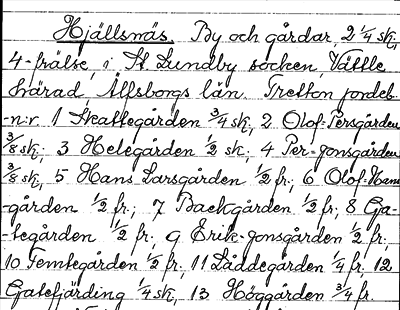 Hjällsnäs. By och gårdar, 2 1/4 sk,
4-frälse, i St. Lundby socken, Vättle
härad Älfsborgs län. Tretton jordeb.
-n:r 1 Skattegården 3/4 sk, 2 Olof-Persgården
3/8 sk; 3 Helegården 1/2 sk; 4 Per-Jonsgården
3/8 sk, 5 Hans Larsgården 1/2 fr.; 6 Olof-Hans
-gården 1/2 fr.; 7 Backgården 1/2 fr.; 8 Ga-
-tegården 1/2 fr.; 9 Erik-Jonsgården 1/2 fr.;
10 Femtegården 1/2 fr, 11 Låddegården 1/4 fr. 12
Gatefjärding 1/4 sk, 13 Höggården 3/4 fr.